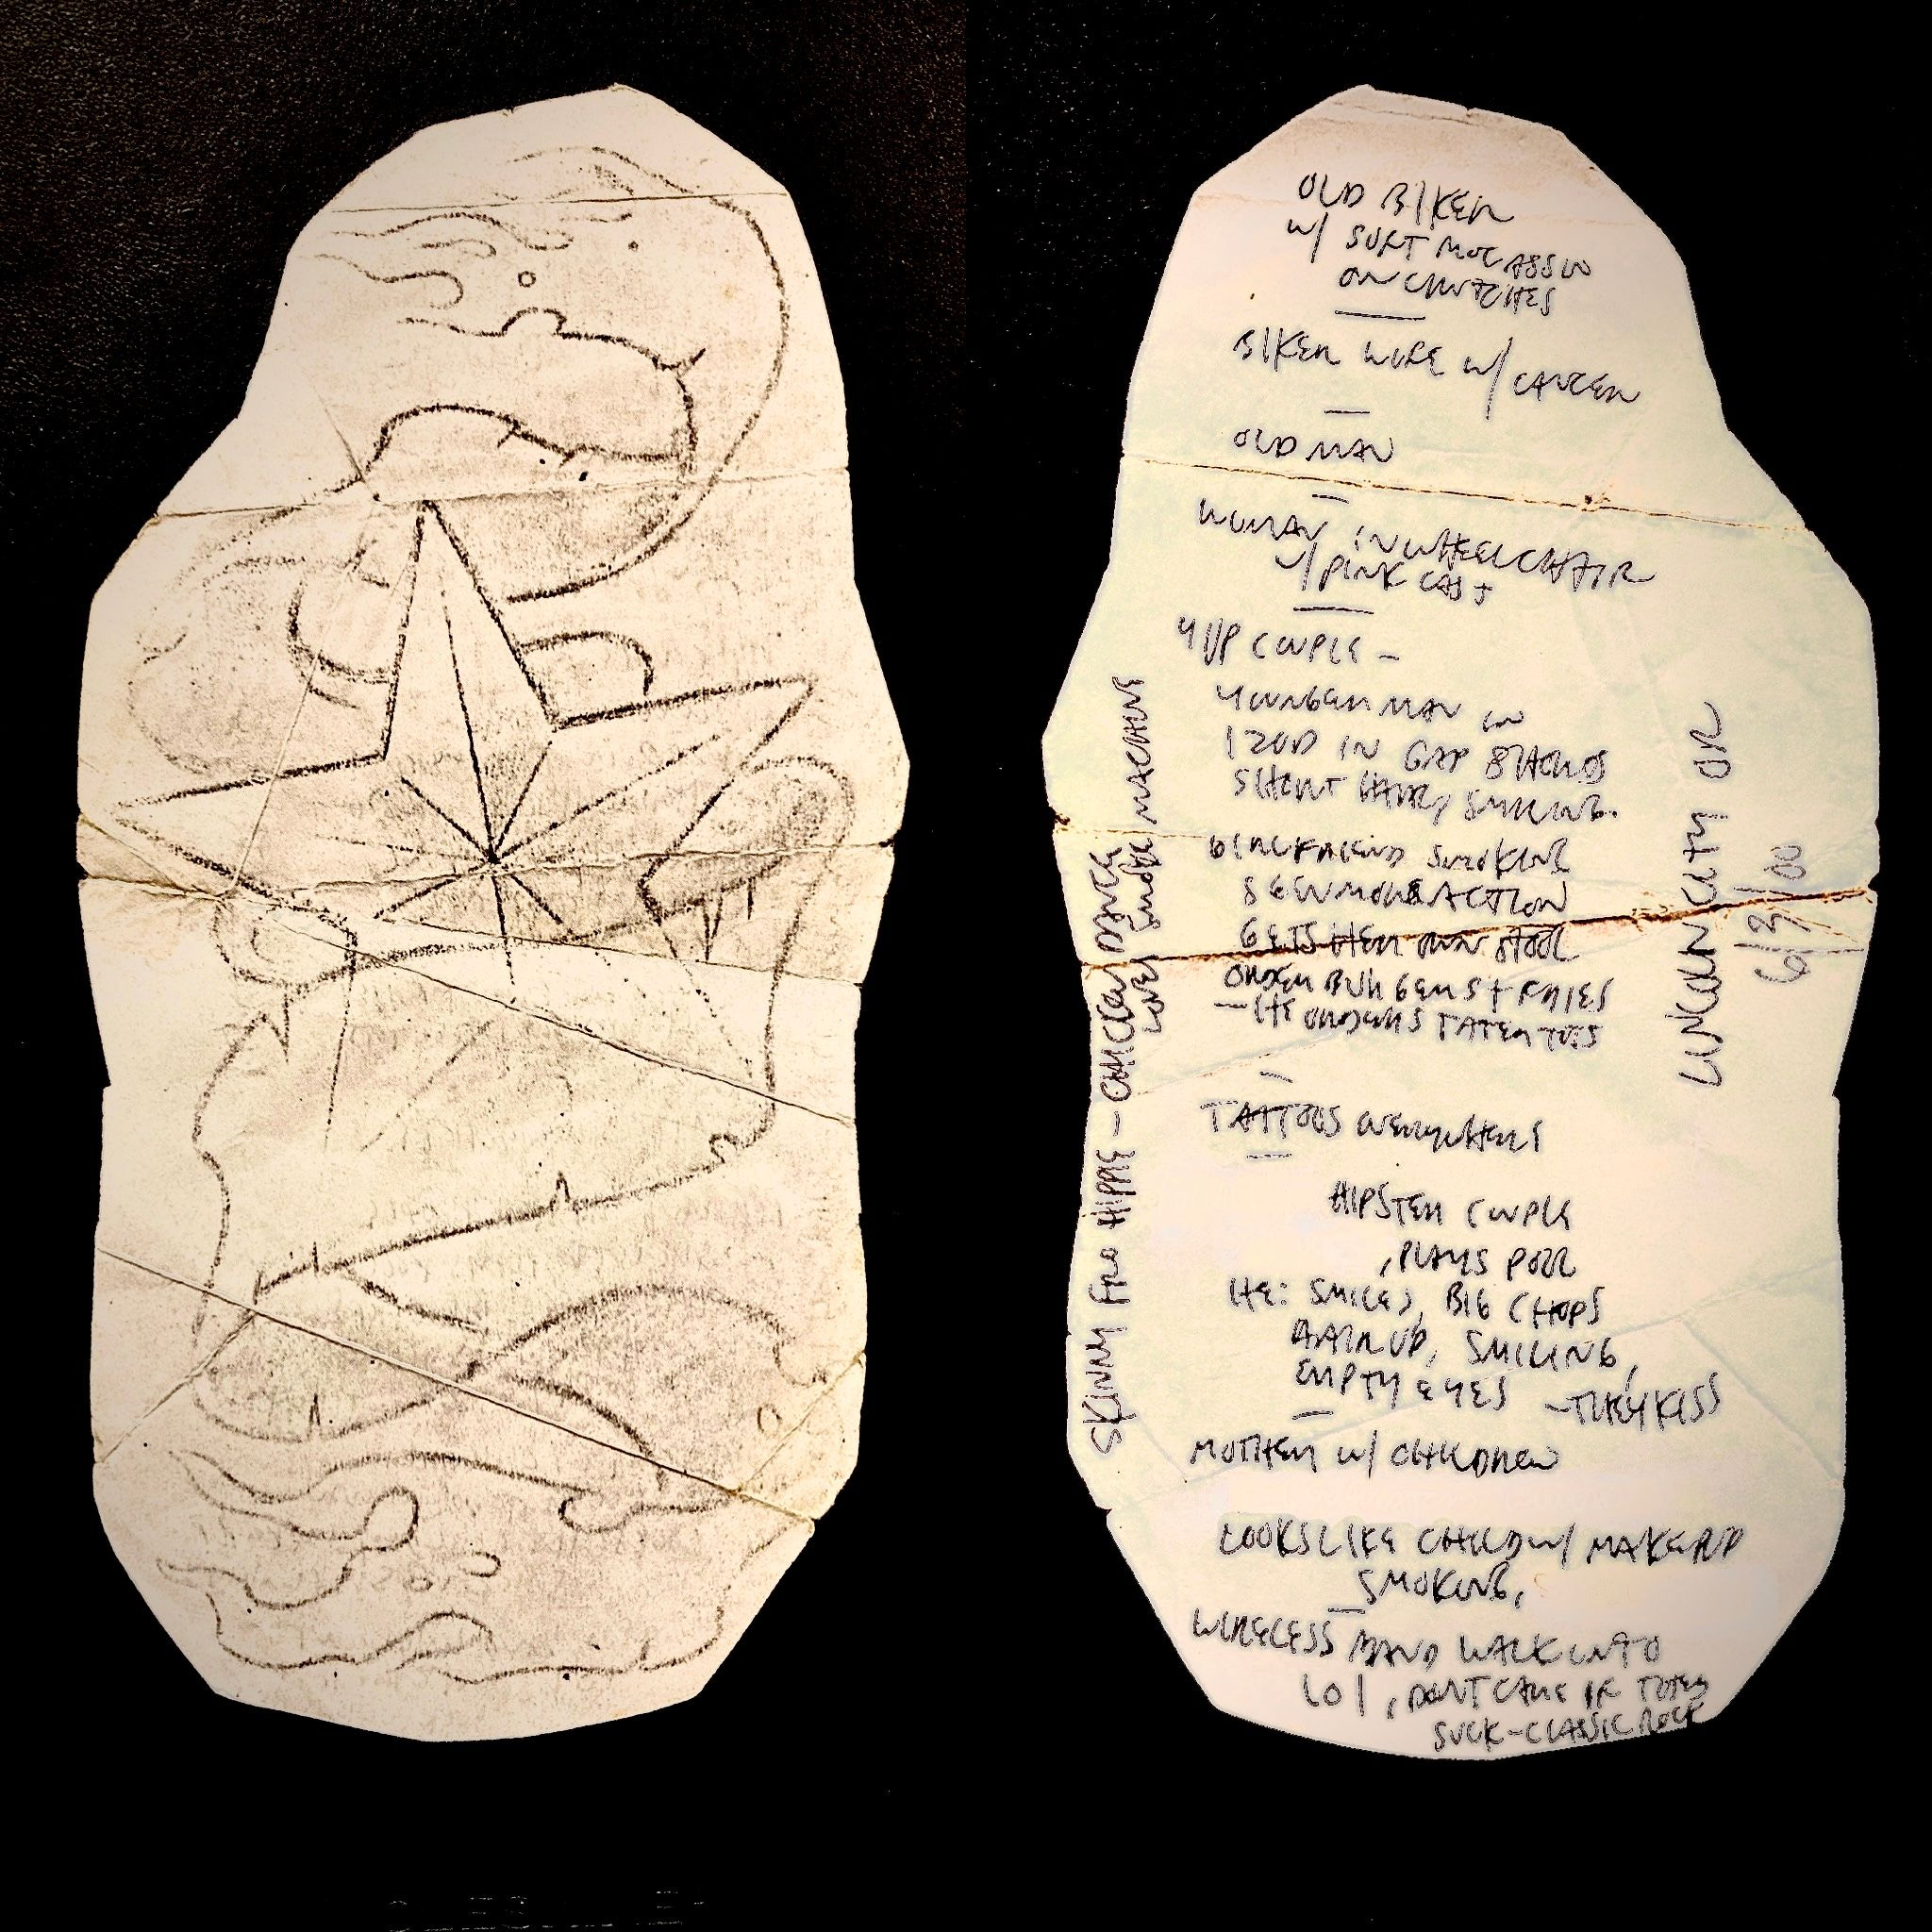 OLD BIKER
w/ SOFT MOCASSIN
ON CRUTCHES
BIKER WIFE w/ CANCER
OLD MAN
WOMAN IN WHEELCHAIR
w/ PINK CAST
YUP COUPLE –
YOUNGER MAN IN
IZOD IN GAP
SHORT HAIR, SMILING.
GIRLFRIEND SMOKING
SEEN MORE ACTION
GETS HER OWN STOOL
ORDER BURGERS + FRIES
– HE ORDERS TATER TOTS
TATTOOS EVERYWHERE
HIPSTER COUPLE
, PLAYS POOL
HE: SMILES, BIG CHOPS
HAIR UP, SMILING,
EMPTY EYES – THEY KISS
MOTHER w/ CHILDREN
LOOKS LIKE CHILD w/ MAKEUP
SMOKING,
WIRELESS BAND WALK INTO
LOT, DON'T CARE IF THEY
SUCK – CLASSIC ROCK
SKINNY FRO HIPPIE – CHICKEN DANCE
LOVES SMOKE MACHINE
LINCOLN CITY OR
6/3/00